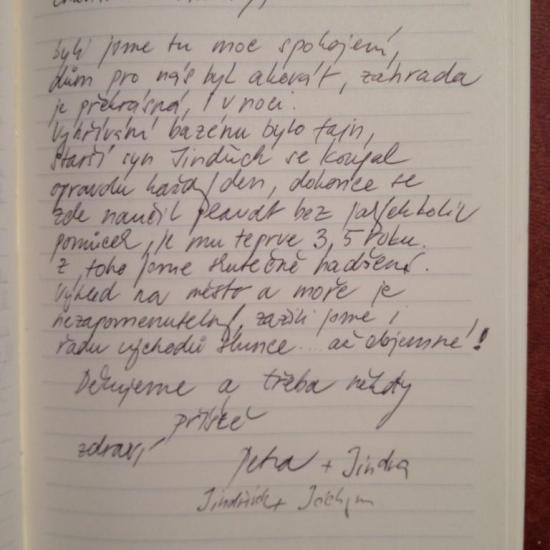 byli jsme tu moc spokojení,
dům pro nás byl akorát, zahrada
je překrásná, i v noci.
Vyhřívání bazénu bylo fajn,
starší syn Jindřich se koupal
opravdu každý den, dokonce se
zde naučil plavat bez jakýchkoliv
pomůcek, je mu teprve 3,5 roku.
Z toho jsme skutečně nadšení.
Výhled na město a moře je
nezapomenutelný, zažili jsme i
řadu východů slunce... ač objemné!
Děkujeme a třeba někdy
příště
zdraví
Petra + Jindra
Jindřich + Jáchym